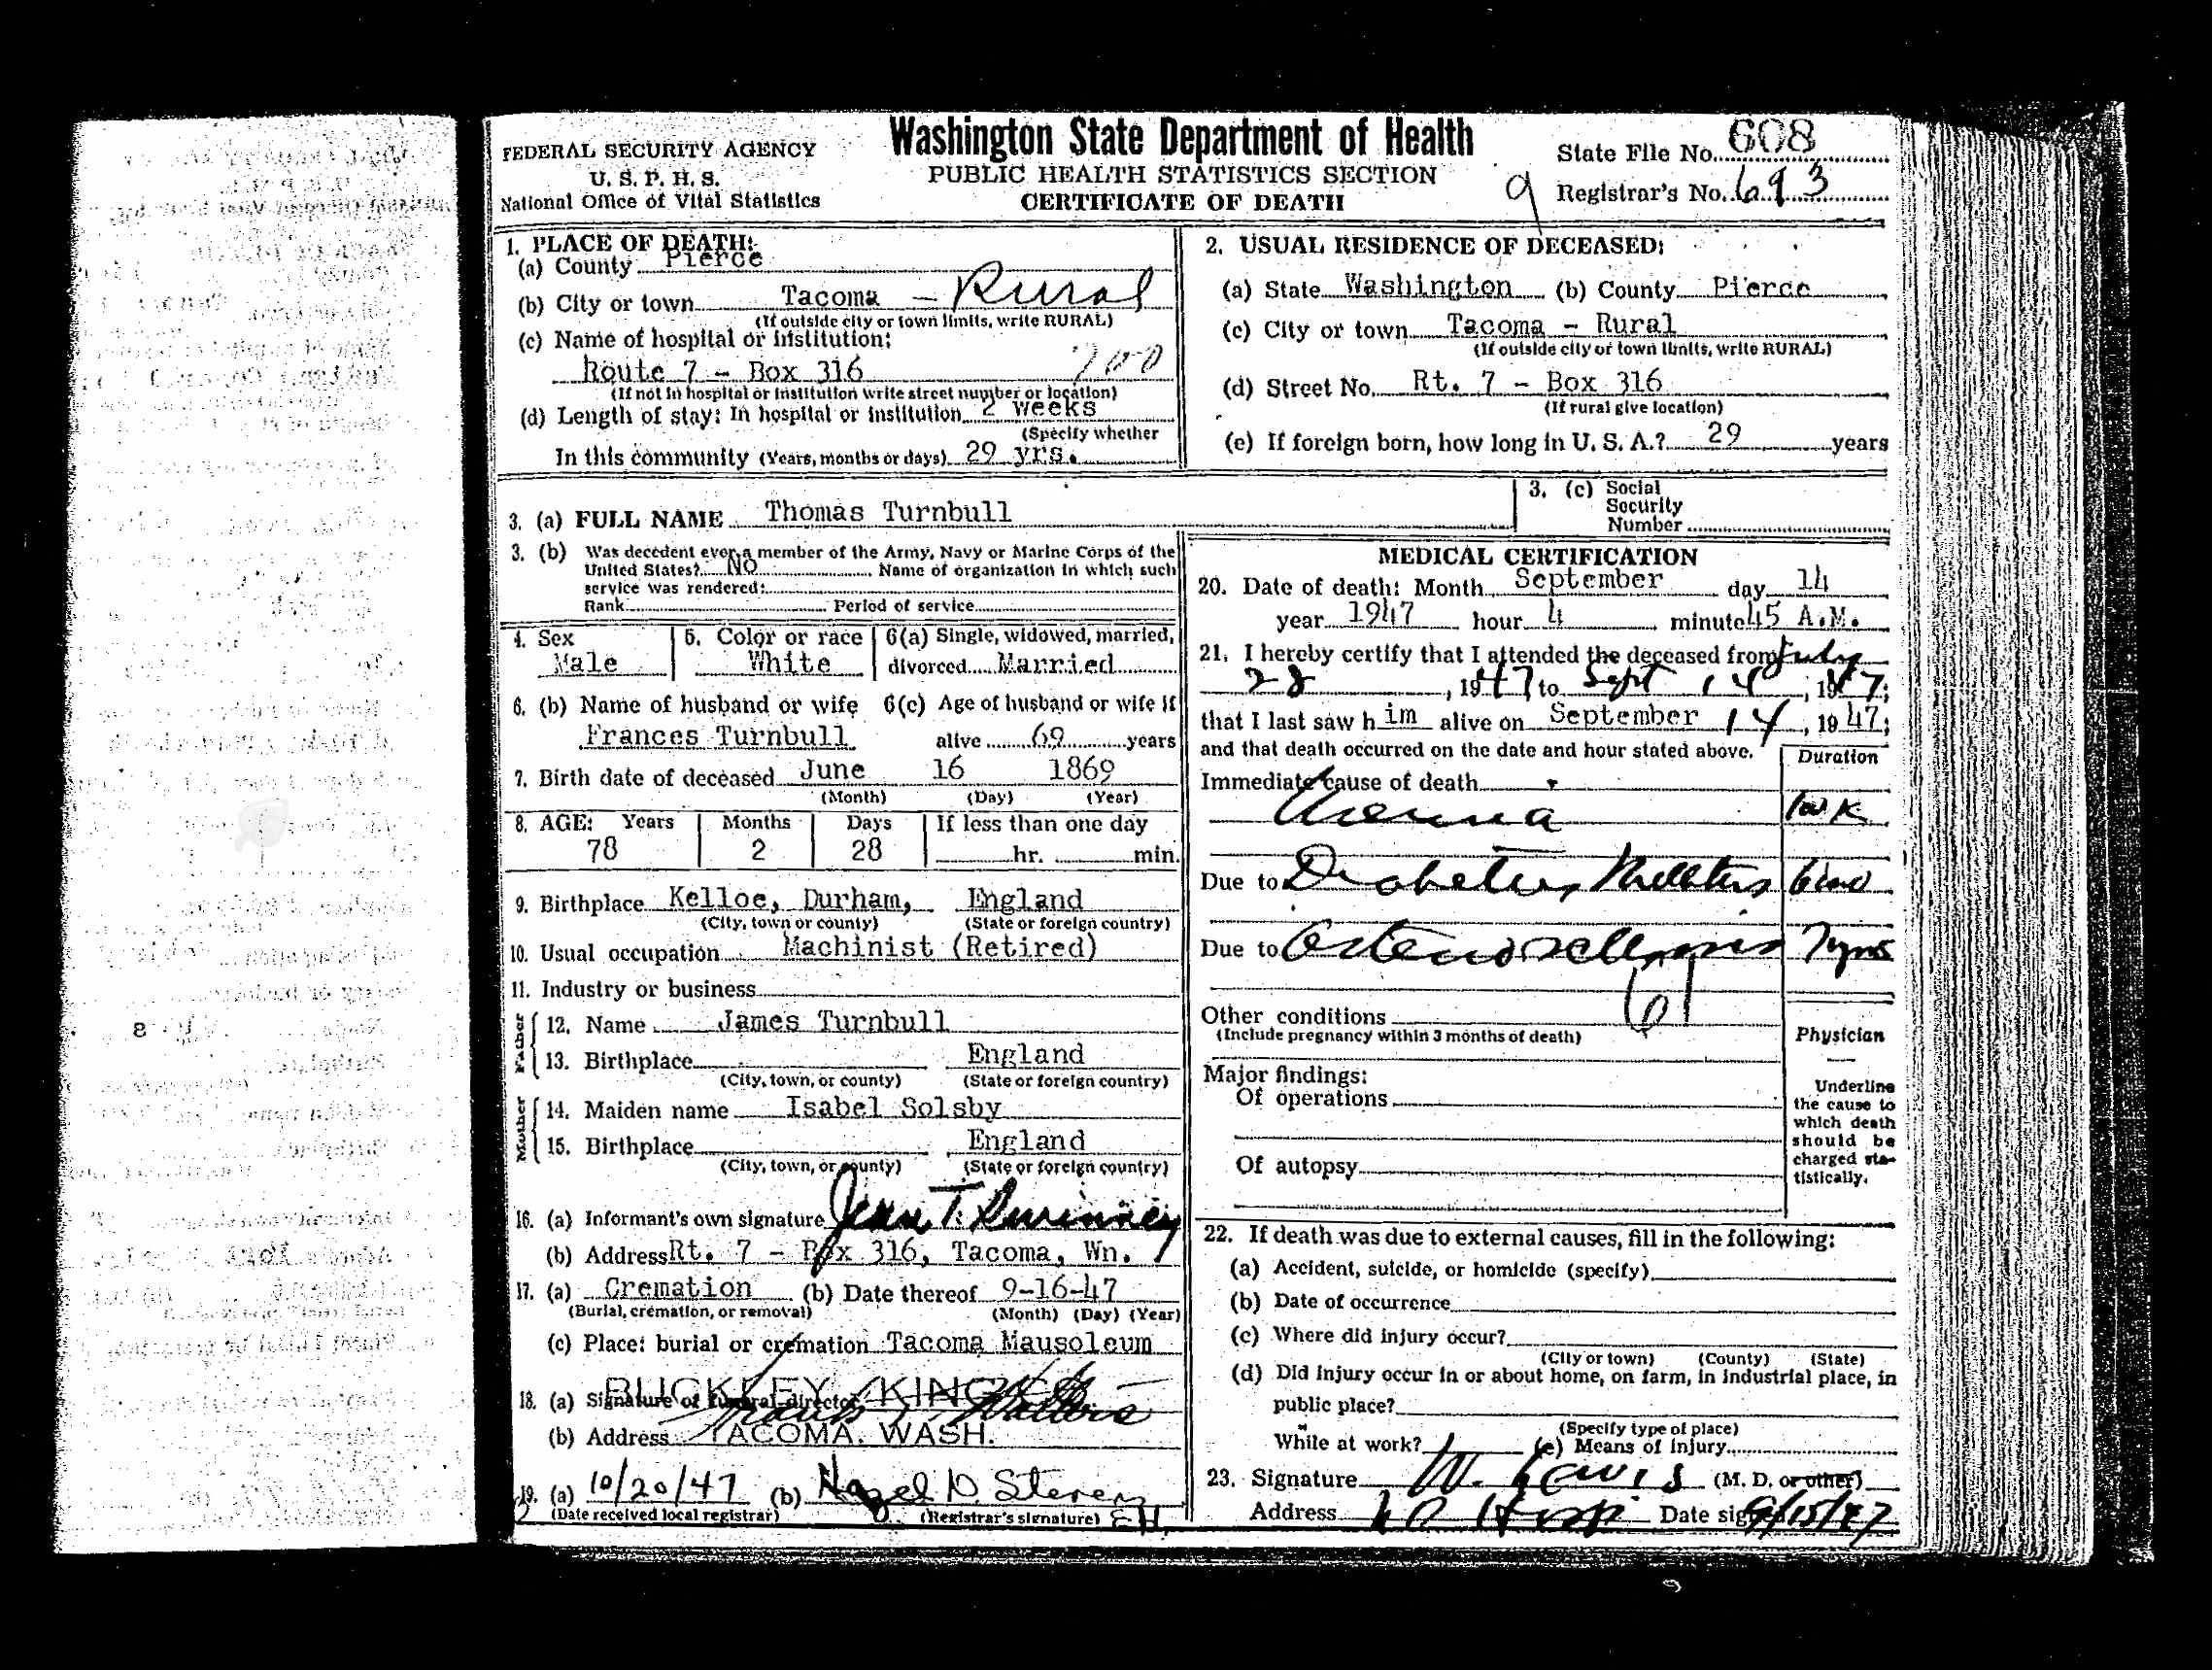 FEDERAL SECURITY AGENCY
U. S. P. H. S.
National Office of Vital Statistics
Washington State Department of Health
PUBLIC HEALTH STATISTICS SECTION
CERTIFICATE OF DEATH
9
State File No. 608
Registrar's No. 693
1. PLACE OF DEATH:
(a) County Pierce
(b) City or town Tacoma - Rural
(If outside city or town limits, write RURAL)
(c) Name of hospital or institution:
Route 7 - Box 316 200
(If not in hospital or institution write street number or location)
(d) Length of stay: In hospital or institution 2 weeks
(Specify whether
In this community (Years, months or days) 29 yrs.
2. USUAL RESIDENCE OF DECEASED:
(a) State Washington (b) County Pierce
(c) City or town Tacoma - Rural
(If outside city or town limits, write RURAL)
(d) Street No. Rt. 7 - Box 316
(If rural give location)
(e) If foreign born, how long in U. S. A.? 29 years
3. (a) FULL NAME Thomas Turnbull
3. (c) Social
Security
Number
3. (b) Was decedent ever a member of the Army, Navy or Marine Corps of the
United States? No Name of organization in which such
service was rendered:
Rank Period of service
4. Sex
Male
5. Color or race
White
6(a) Single, widowed, married,
divorced Married
6. (b) Name of husband or wife
Frances Turnbull
6(c) Age of husband or wife if
alive 69 years
7. Birth date of deceased June 16 1869
(Month) (Day) (Year)
8. AGE: Years Months Days If less than one day
78 2 28 hr. min.
9. Birthplace Kelloe, Durham, England
(City, town or county) (State or foreign country)
10. Usual occupation Machinist (Retired)
11. Industry or business
Father
12. Name James Turnbull
13. Birthplace England
(City, town, or county) (State or foreign country)
Mother
14. Maiden name Isabel Solsby
15. Birthplace England
(City, town, or county) (State or foreign country)
16. (a) Informant's own signature Jean T.
(b) Address Rt. 7 - Box 316, Tacoma, Wn.
17. (a) Cremation (b) Date thereof 9-16-47
(Burial, cremation, or removal) (Month) (Day) (Year)
(c) Place: burial or cremation Tacoma Mausoleum
18. (a) Signature of funeral director BUCKLEY KING
(b) Address TACOMA, WASH.
19. (a) 10/20/47 (b) Hazel D. Stevens
(Date received local registrar) (Registrar's signature) EH
MEDICAL CERTIFICATION
20. Date of death: Month September day 14
year 1947 hour 4 minute 45 A.M.
21. I hereby certify that I attended the deceased from July
28, 1947 to Sept 14, 1947;
that I last saw him alive on September 14, 1947;
and that death occurred on the date and hour stated above.
Duration
Immediate cause of death
Uremia 1 wk
Due to Diabetes Mellitus
Due to Arteriosclerosis 7 yrs
61
Other conditions
(Include pregnancy within 3 months of death)
Major findings:
Of operations
Of autopsy
Physician
Underline
the cause to
which death
should be
charged sta-
tistically.
22. If death was due to external causes, fill in the following:
(a) Accident, suicide, or homicide (specify)
(b) Date of occurrence
(c) Where did injury occur?
(City or town) (County) (State)
(d) Did injury occur in or about home, on farm, in industrial place, in
public place?
(Specify type of place)
While at work? (e) Means of injury
23. Signature (M. D. or other)
Address Date signed 9/15/47